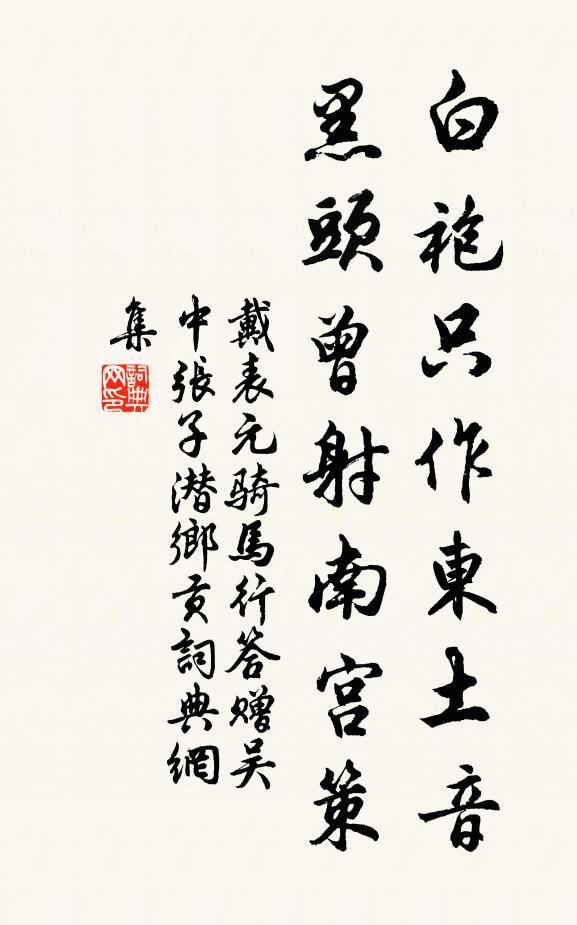 白袍只作東土音
黑頭曾射南宮策
戴表元騎馬行答贈吴
中張子潜鄉貢詞典網
集
詞典
网印